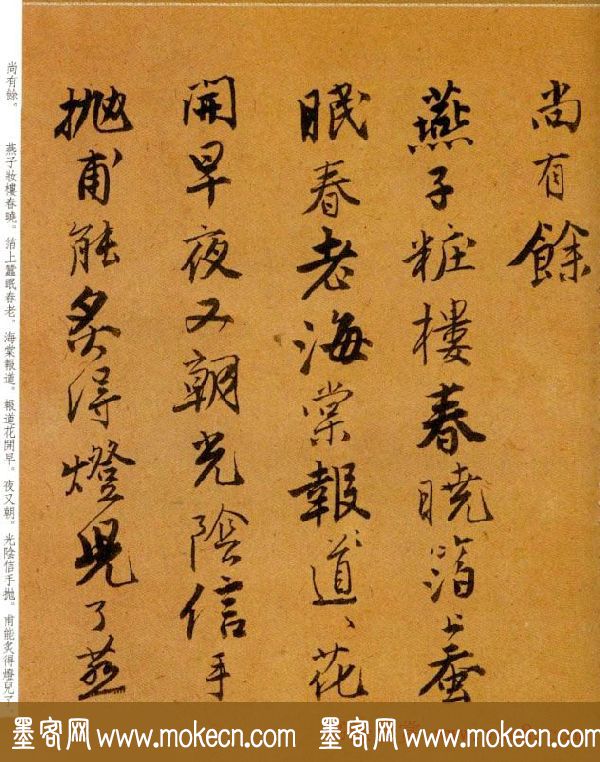 尚有餘
燕子粧樓春曉箔上蚕
眠春老海棠報道〻花
開早夜又朝光陰信手
抛甫能炙得燈児了燕
尚有餘。 燕子妝樓春曉。箔上蠶眠春老。海棠報道。報道花開早。夜又朝。光陰信手抛。甫能炙得燈兒了
墨客网 www.mokecn.com 墨客网 www.mokecn.com